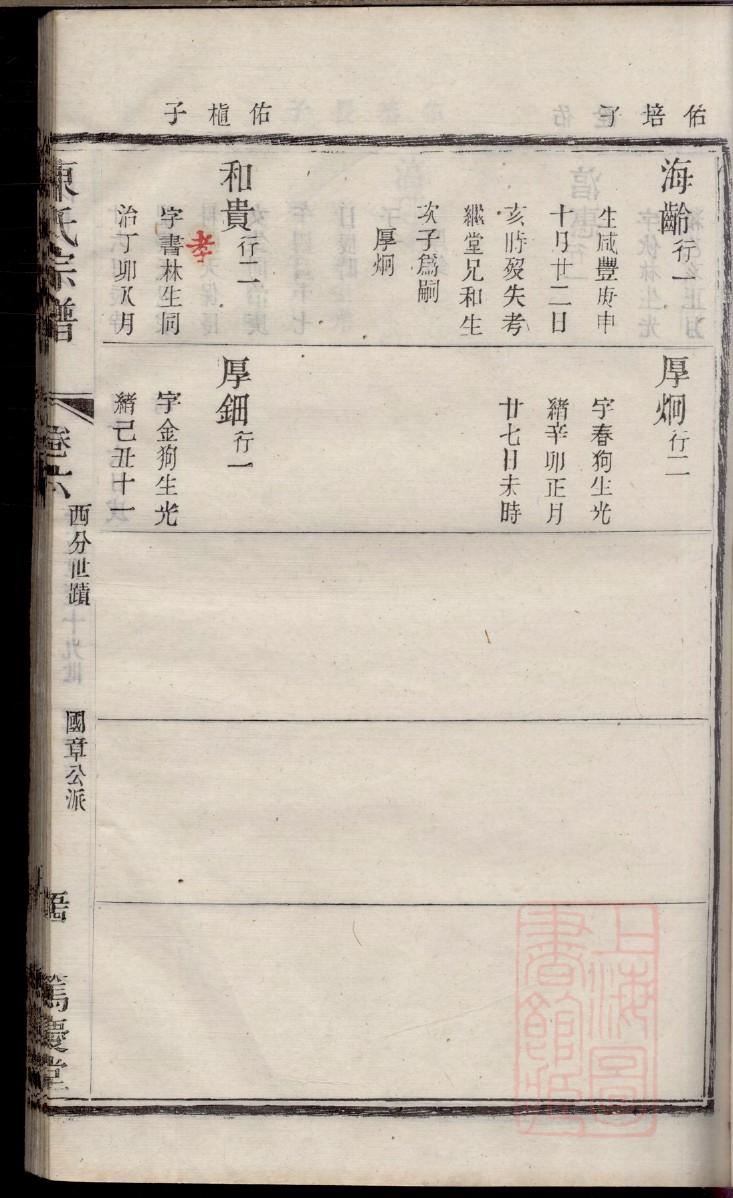 佑培子
佑植子
海齡行一
生咸豐庚申
十月廿二日
亥時歿失考
繼堂兄和生
次子爲嗣
厚炯
和貴行二
字書林生同
治丁卯八月
孝
厚炯行二
字春狗生光
緒辛卯正月
廿七日未時
厚鈿行一
字金狗生光
緒己丑十一
陳氏宗譜
卷六
西分世蹟
國章公派
篤慶堂
上海圖
書館藏